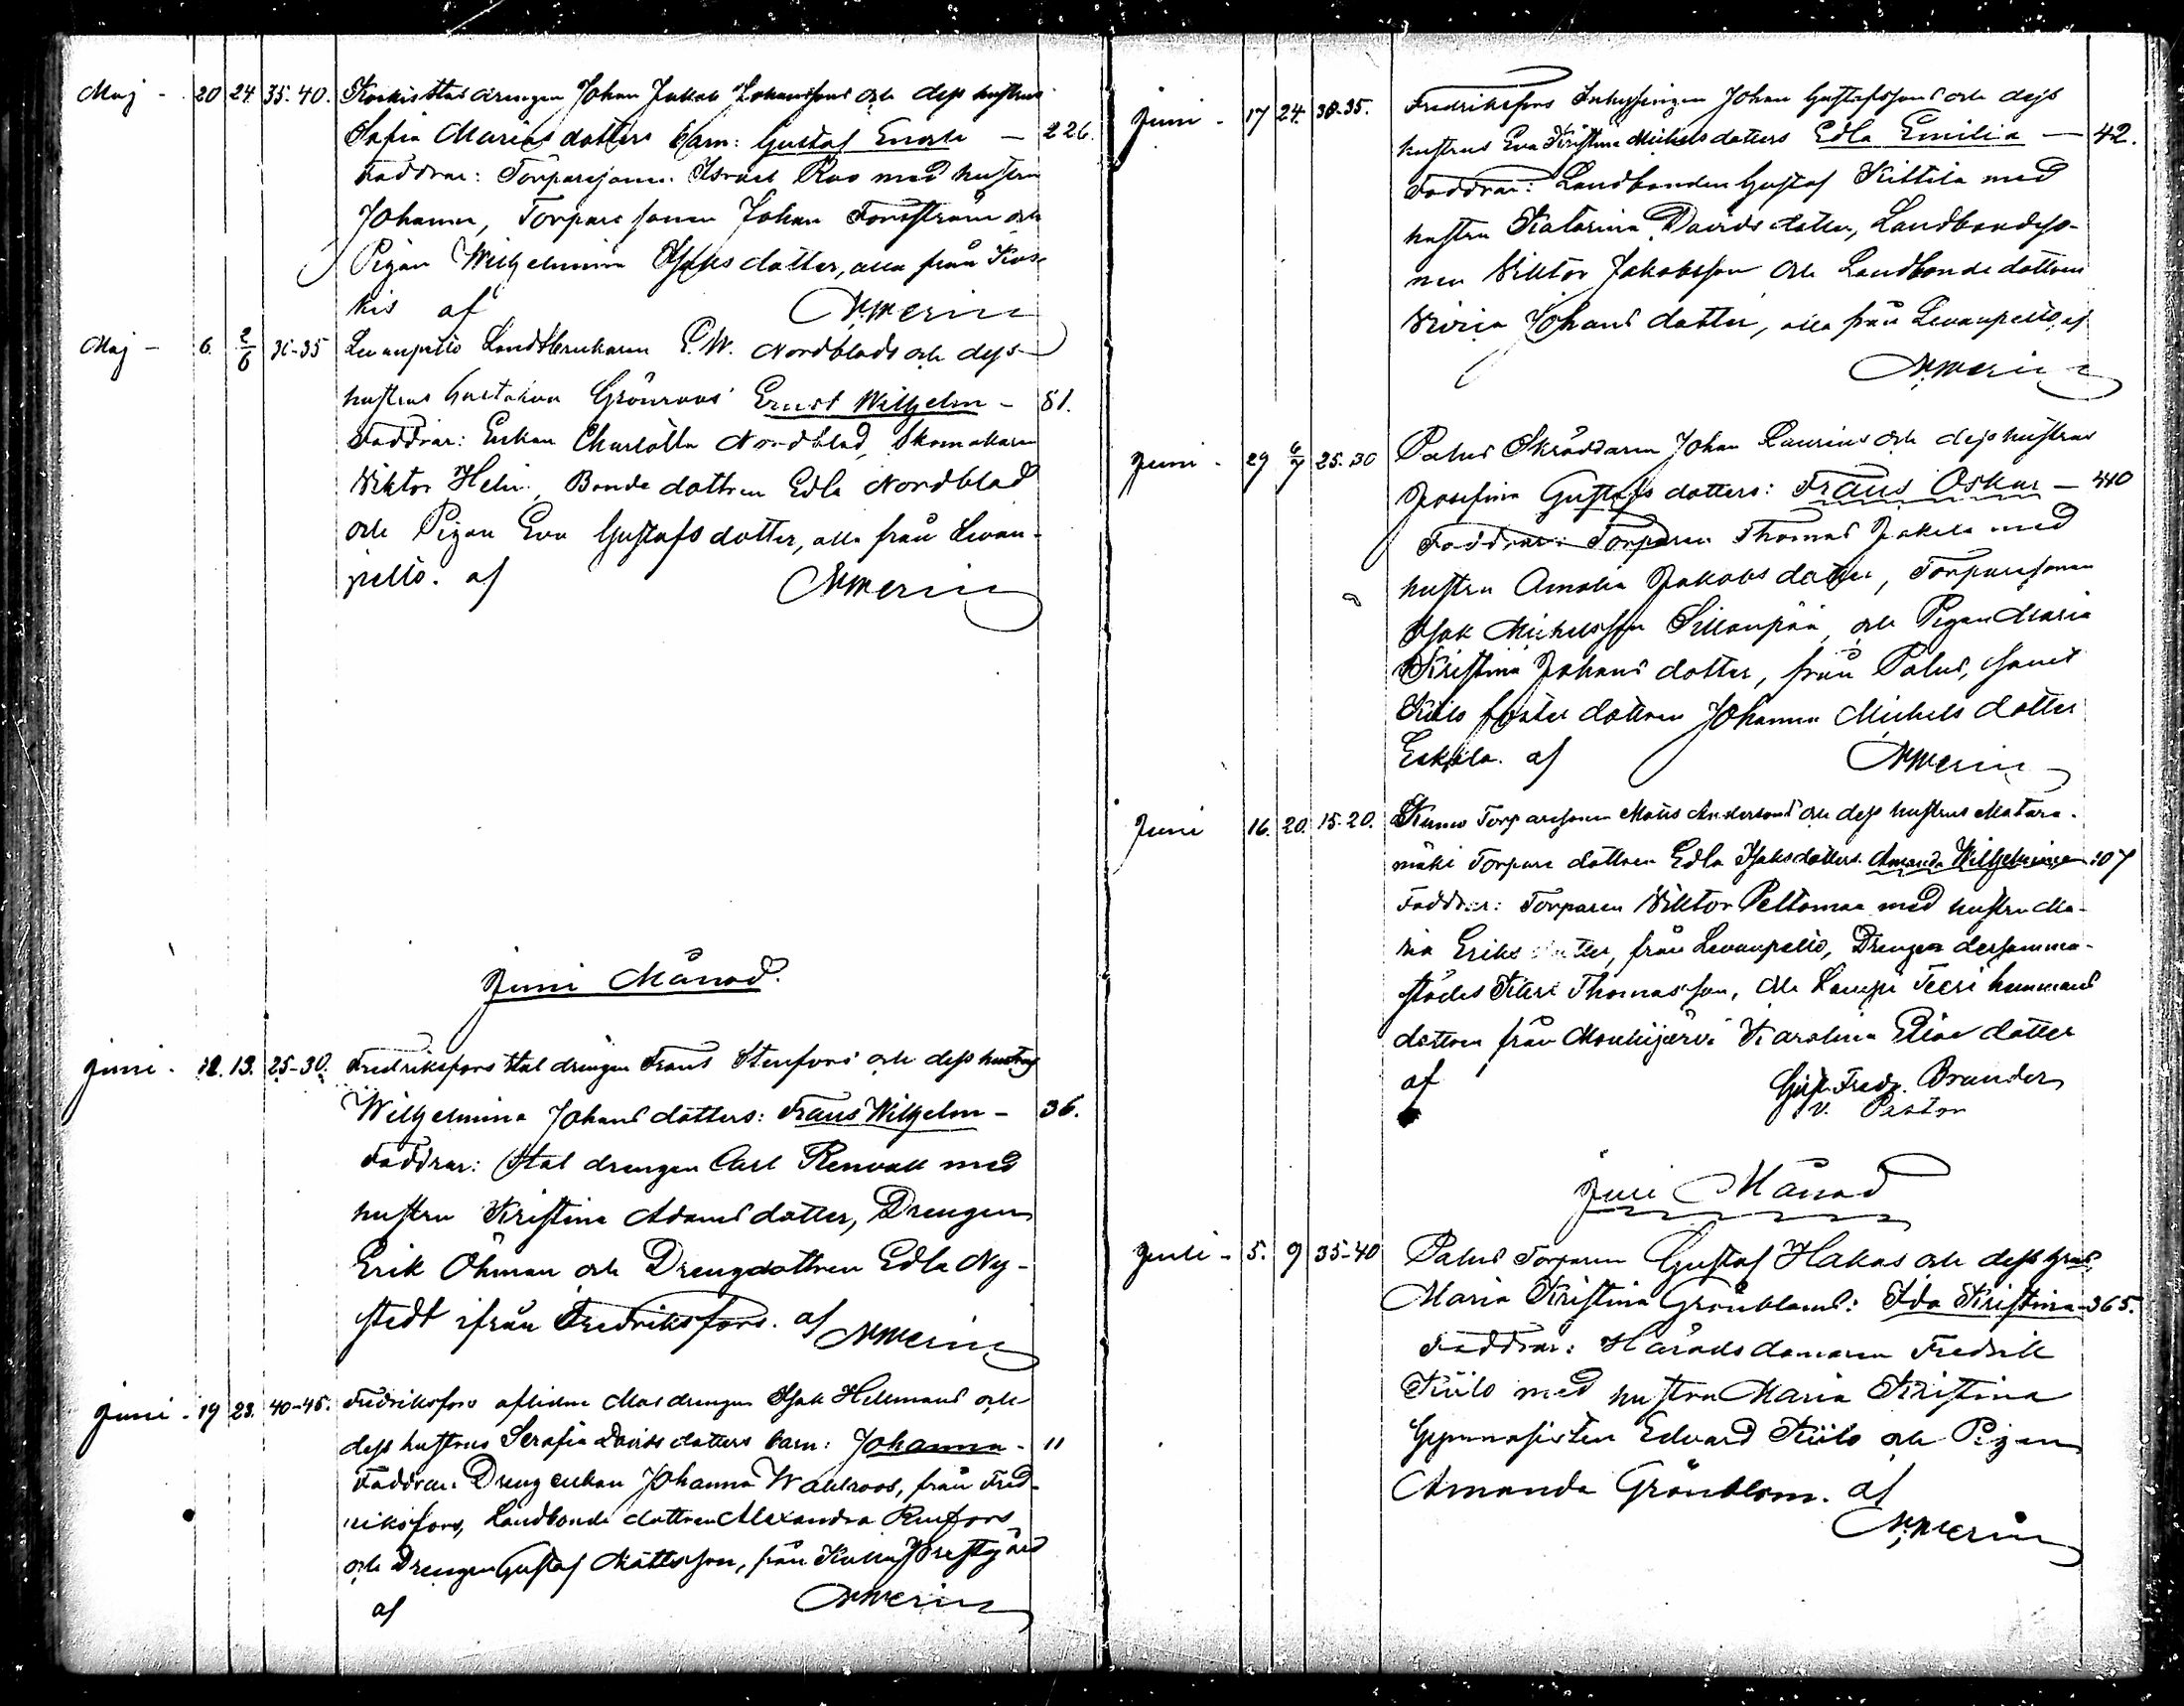 Maj - 20 24 35-40. Koskis Stat drengen Johan Jakob Johanssons och dess hustrus
Sofia Mariasdotters barn: Gustaf Enok — 226.
Faddrar: Torparesonen Israel Roo med hustru
Johanna, Torpare sonen Johan Forsström och
Pigan Wilhelmina Isaksdotter, alla från Kos-
kis af
Maj - 6. 2/6 35 Levanpelto Landtbrukaren G. W. Nordblads och dess
hustrus Gustava Grönroos' Ernst Wilhelm - 81.
Faddrar: Enkan Charlotta Nordblad, Skomakaren
Viktor Helin, Bonde dottren Edla Nordblad
och Pigan Eva Gustafsdotter, alla från Levan-
pelto. af
Juni Månad.
Juni - 12. 13. 25-30. Fredriksfors Stal drengen Frans Stenfors och dess hustrus
Wilhelmina Johansdotters: Frans Wilhelm - 36.
Faddrar: Stal drengen Carl Renvall med
hustru Kristina Adamsdotter, Drengen
Erik Öhman och Drengdottren Edla Ny-
stedt ifrån Fredriksfors. af
Juni - 19 23. 40-45. Fredriksfors aflidne drengen Isak Hellmans och
dess hustrus Serafia Davidsdotters barn: Johanna - 11
Faddrar: Dreng enkan Johanna Wahlroos, från Fred-
riksfors, Landbonde dottren Alexandra Renfors
och Drengen Gustaf Mattsson, från Kulla Prestgård
af
Juni - 17 24. 30-35. Fredriksfors Inhysingen Johan Gustafssons och dess
hustrus Eva Kristina Michelsdotters Edla Emilia — 42.
Faddrar: Landbonden Gustaf Kittila med
hustru Katarina Davidsdotter, Landbondeso-
nen Viktor Jakobsson och Landbonde dottren
Johansdotter, alla från Levanpelto, af
Juni - 29 6/7 25-30 Palus Skräddaren Johan Laurins och dess hustrus
Josefina Gustafsdotters: Frans Oskar — 440
Faddrar: Torparen Thomas Jakela med
hustru Amalia Jakobsdotter, Torparesonen
Isak Michelsson Sillanpää, och Pigan Maria
Kristina Johansdotter, från Palus, samt
Kiilo foster dottren Johanna Michelsdotter
Eskola. af
Juni 16. 20. 15-20. Torparesonen Matts Anderssons och dess hustrus Matara-
mäki Torpare dottren Edla Isaksdotters Amanda Wilhelmina 107
Faddrar: Torparen Viktor Peltomaa med hustru Ma-
ria Eriksdotter, från Levanpelto, Drengen dersamma-
städes Thomasson, och Lampi Teeri hemmans
dottren från Mouhijärvi Karolina Eliaedotter
af Gust. Fredr. Brander
v. Pastor
Juli Månad
Juli - 5. 9 35-40 Palus Torparen Gustaf Hakas och dess hustrus
Maria Kristina Grönbloms: Ida Kristina - 365.
Faddrar: Häradsdomaren Fredrik
Kiilo med hustru Maria Kristina
Gymnasisten Edvard Kiilo och Pigan
Amanda Grönblom. af